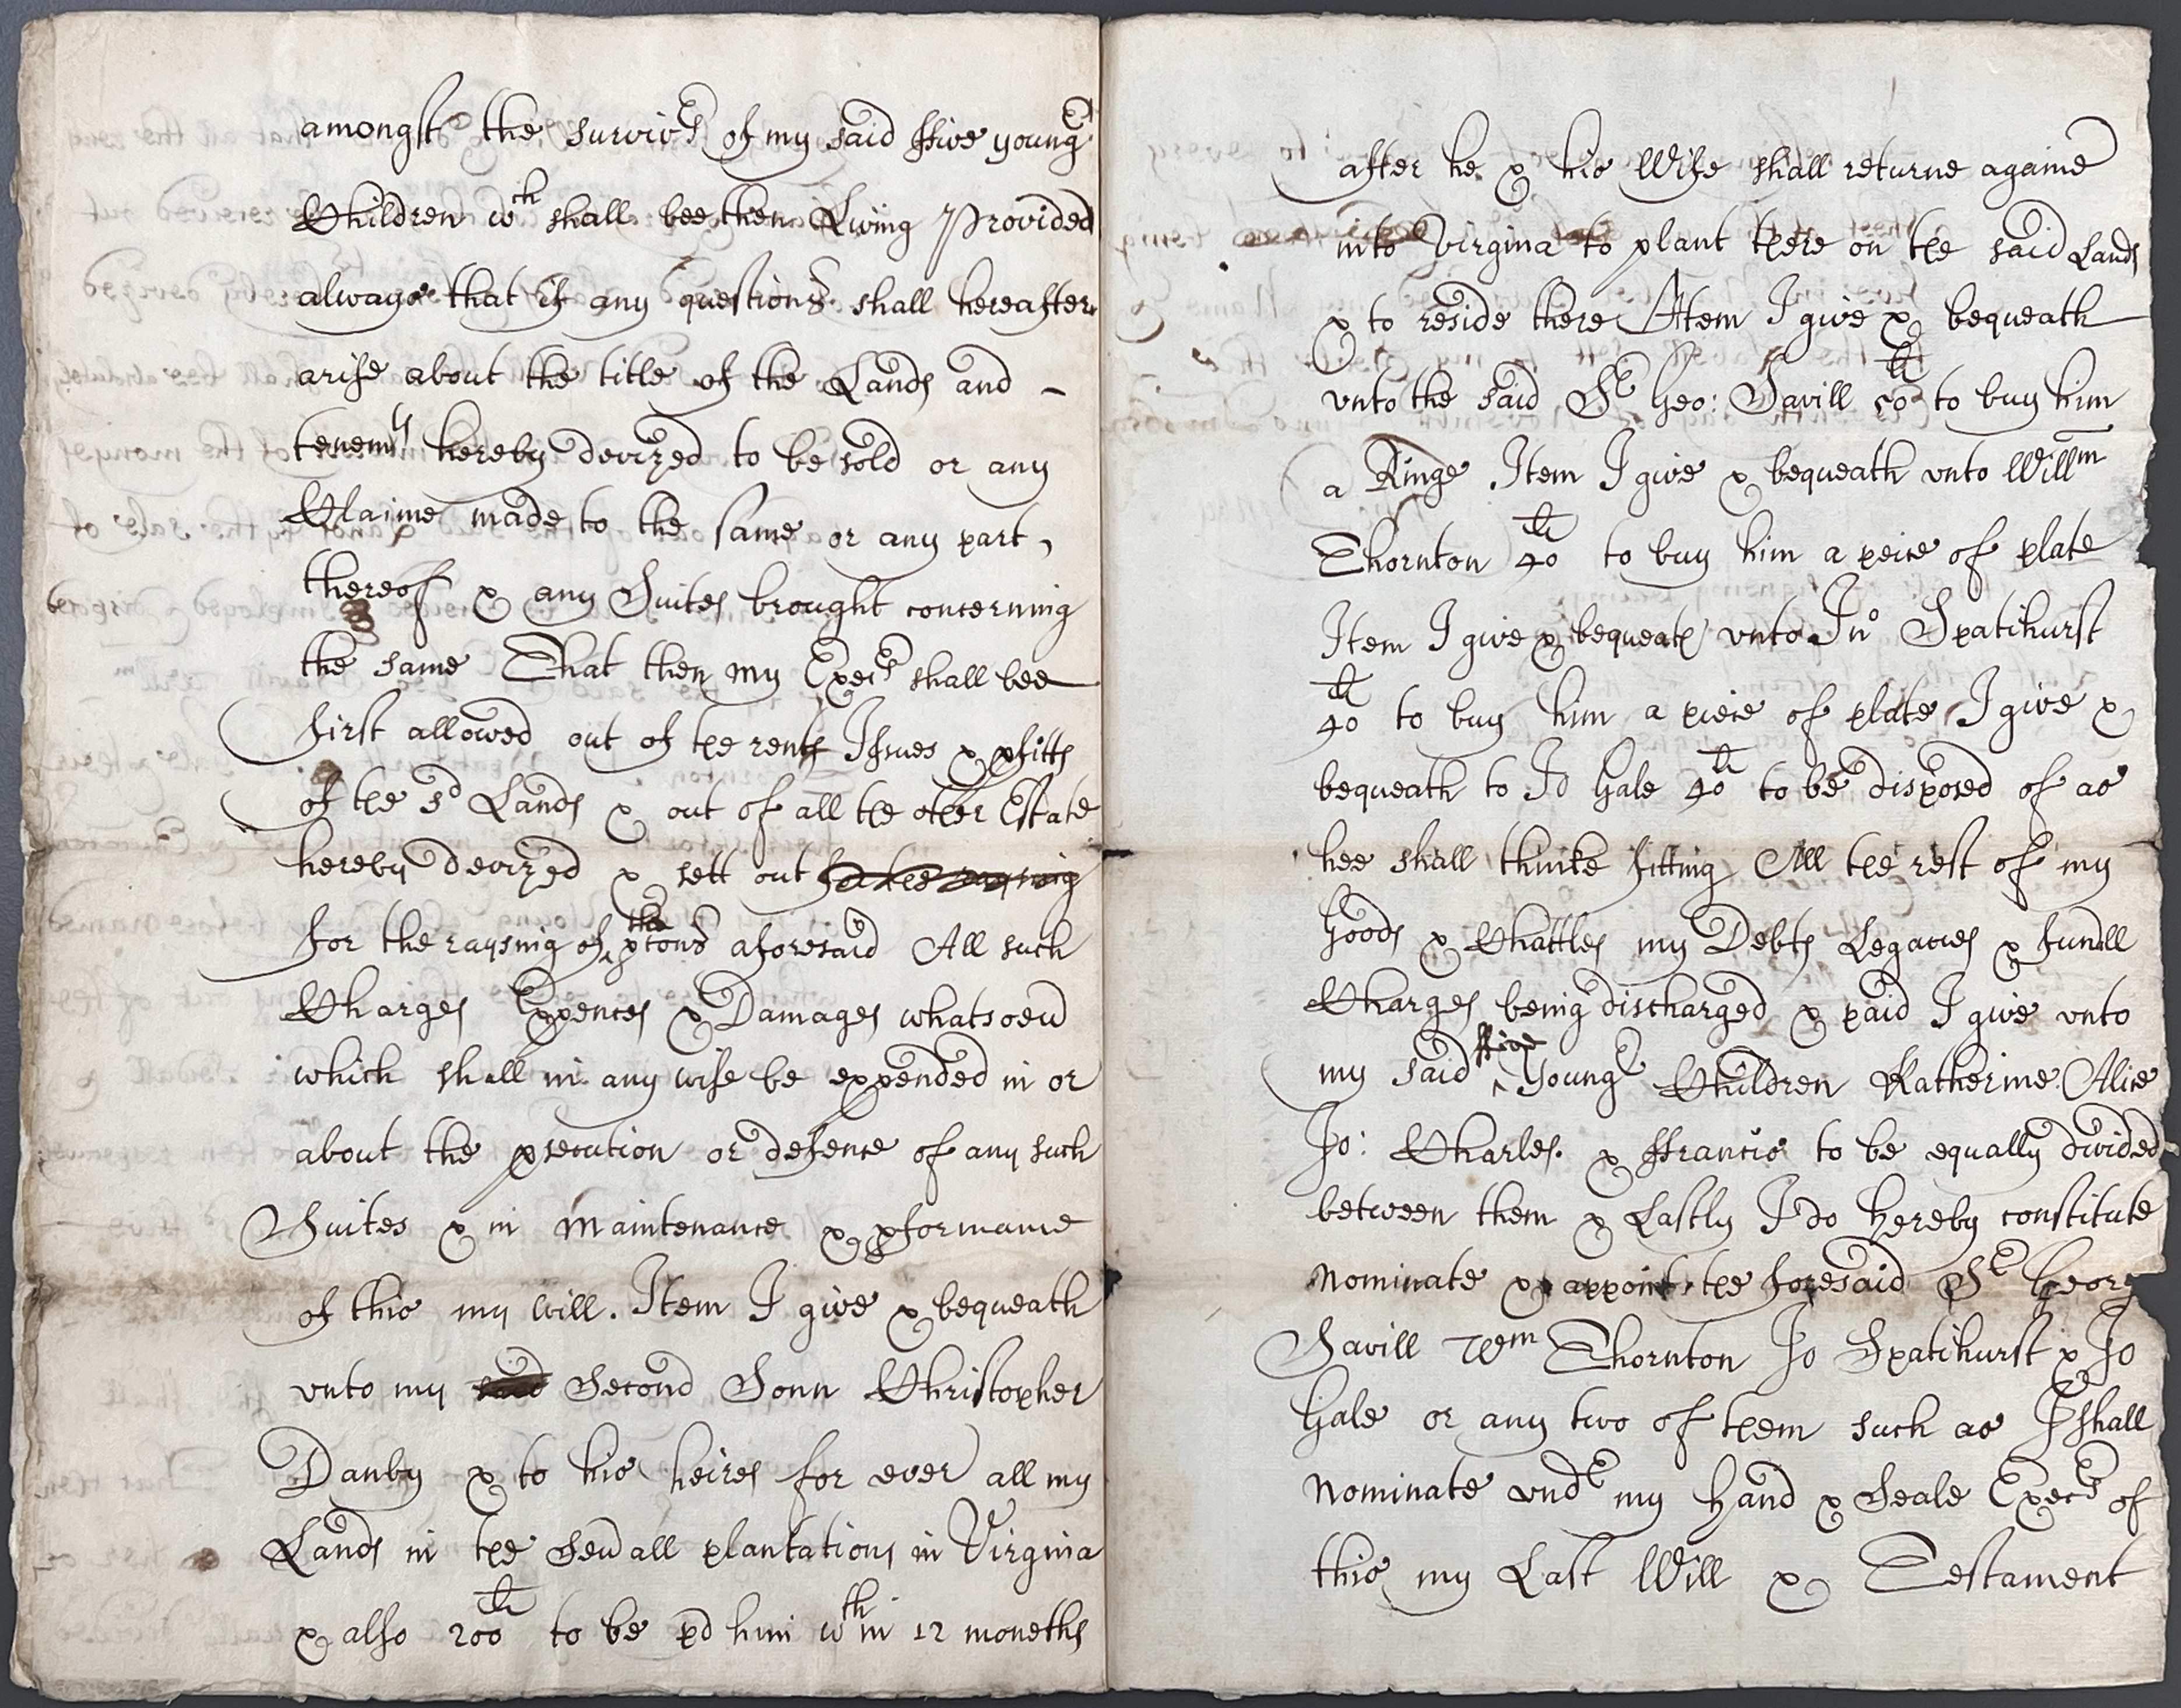 amongst the surviv^rs of my said ffive young^r
Children w^ch shall bee then Living Provided
always that if any questions shall hereafter
arise about the title of the Lands and -
tenem^ts hereby devized to be sold or any
Claime made to the same or any part
thereof & any Suites brought concerning
the same That then my Exec^rs shall bee
first allowed out of the rents Issues & pfitts
of the s^d Lands & out of all the other Estate
hereby devized & sett out for the raysing
for the raysing of the ptons aforesaid All such
Charges Expences & Damages whatsoev^r
which shall in any wise be expended in or
about the psecution or defence of any such
Suites & in Maintenance & pformance
of this my will. Item I give & bequeath
vnto my said Second Sonn Christopher
Danby & to his heires for ever all my
Lands in the sev^rall plantations in Virginia
& also 200^li to be pd him w^thin 12 moneths
after he & his Wife shall returne againe
into Virgina to plant there on the said Lands
& to reside there Item I give & bequeath
vnto the said S^r Geo: Savill 50^li to buy him
a Ringe Item I give & bequeath vnto Will^m
Thornton 40^li to buy him a peice of plate
Item I give & bequeath vnto Jn^o Spatihurst
40^li to buy him a piece of plate I give &
bequeath to Jo Gale 40^li to be disposed of as
hee shall thinke fitting All the rest of my
Goods & Chattles my Debts Legacies & funrll
Charges being discharged & paid I give vnto
my said ffive Young^r Children Katherine Alice
Jo: Charles & ffrancis to be equally divided
between them & Lastly I do hereby constitute
Nominate & appoint the foresaid S^r Georg
Savill W^m Thornton Jo Spatihurst & Jo
Gale or any two of them such as I shall
Nominate vnd^r my Hand & Seale Exec^rs of
this my Last Will & Testament